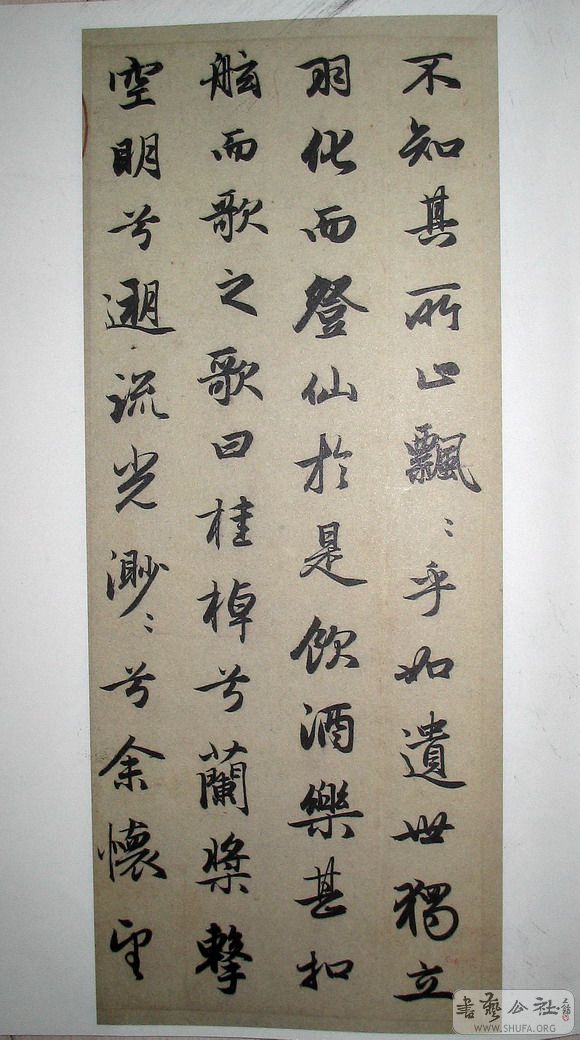 不知其所止飄〻乎如遺世獨立
羽化而登仙於是飲酒樂甚扣
舷而歌之歌曰桂棹兮蘭槳擊
空明兮遡流光渺〻兮余懷望
書藝公社
WWW.SHUFA.ORG